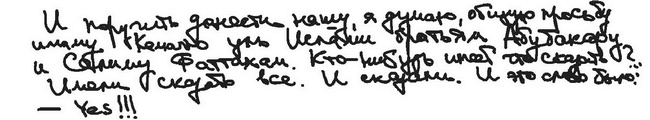 И поручить донести нашу, я думаю, общую просьбу
имаму Канаты уль Ислами братьям Абубакару
и Салиму Фаттахам. Кто-нибудь имеет что сказать?..
Имели сказать все. И сказали. И это слово было:
— Yes!!!